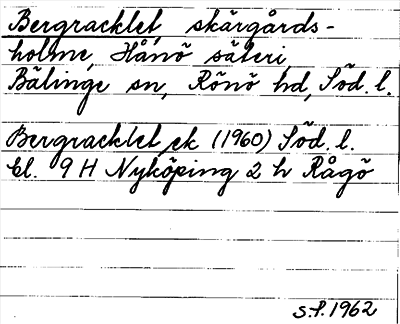 Bergracklet, skärgårds-
holme, Hånö säteri,
Bälinge sn, Rönö hd, Söd. l.
Bergracklet ek (1960) Söd. l.
bl. 9 H Nyköping 2 h Rågö
S.P. 1962